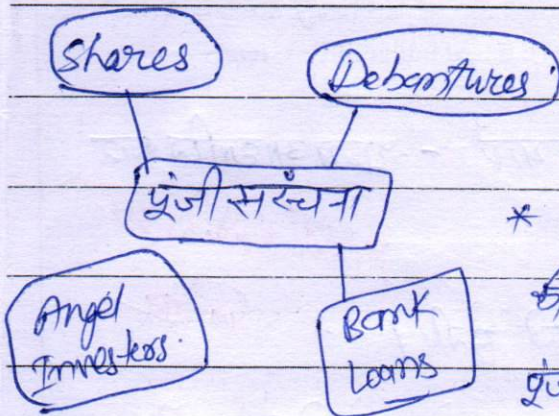 Shares
Debantures
पूंजी सरंचना
*
Angel
Investers.
Bank
Loans
पूंज